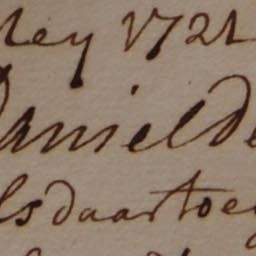 ley 1721
Daniel de
ls daartoe